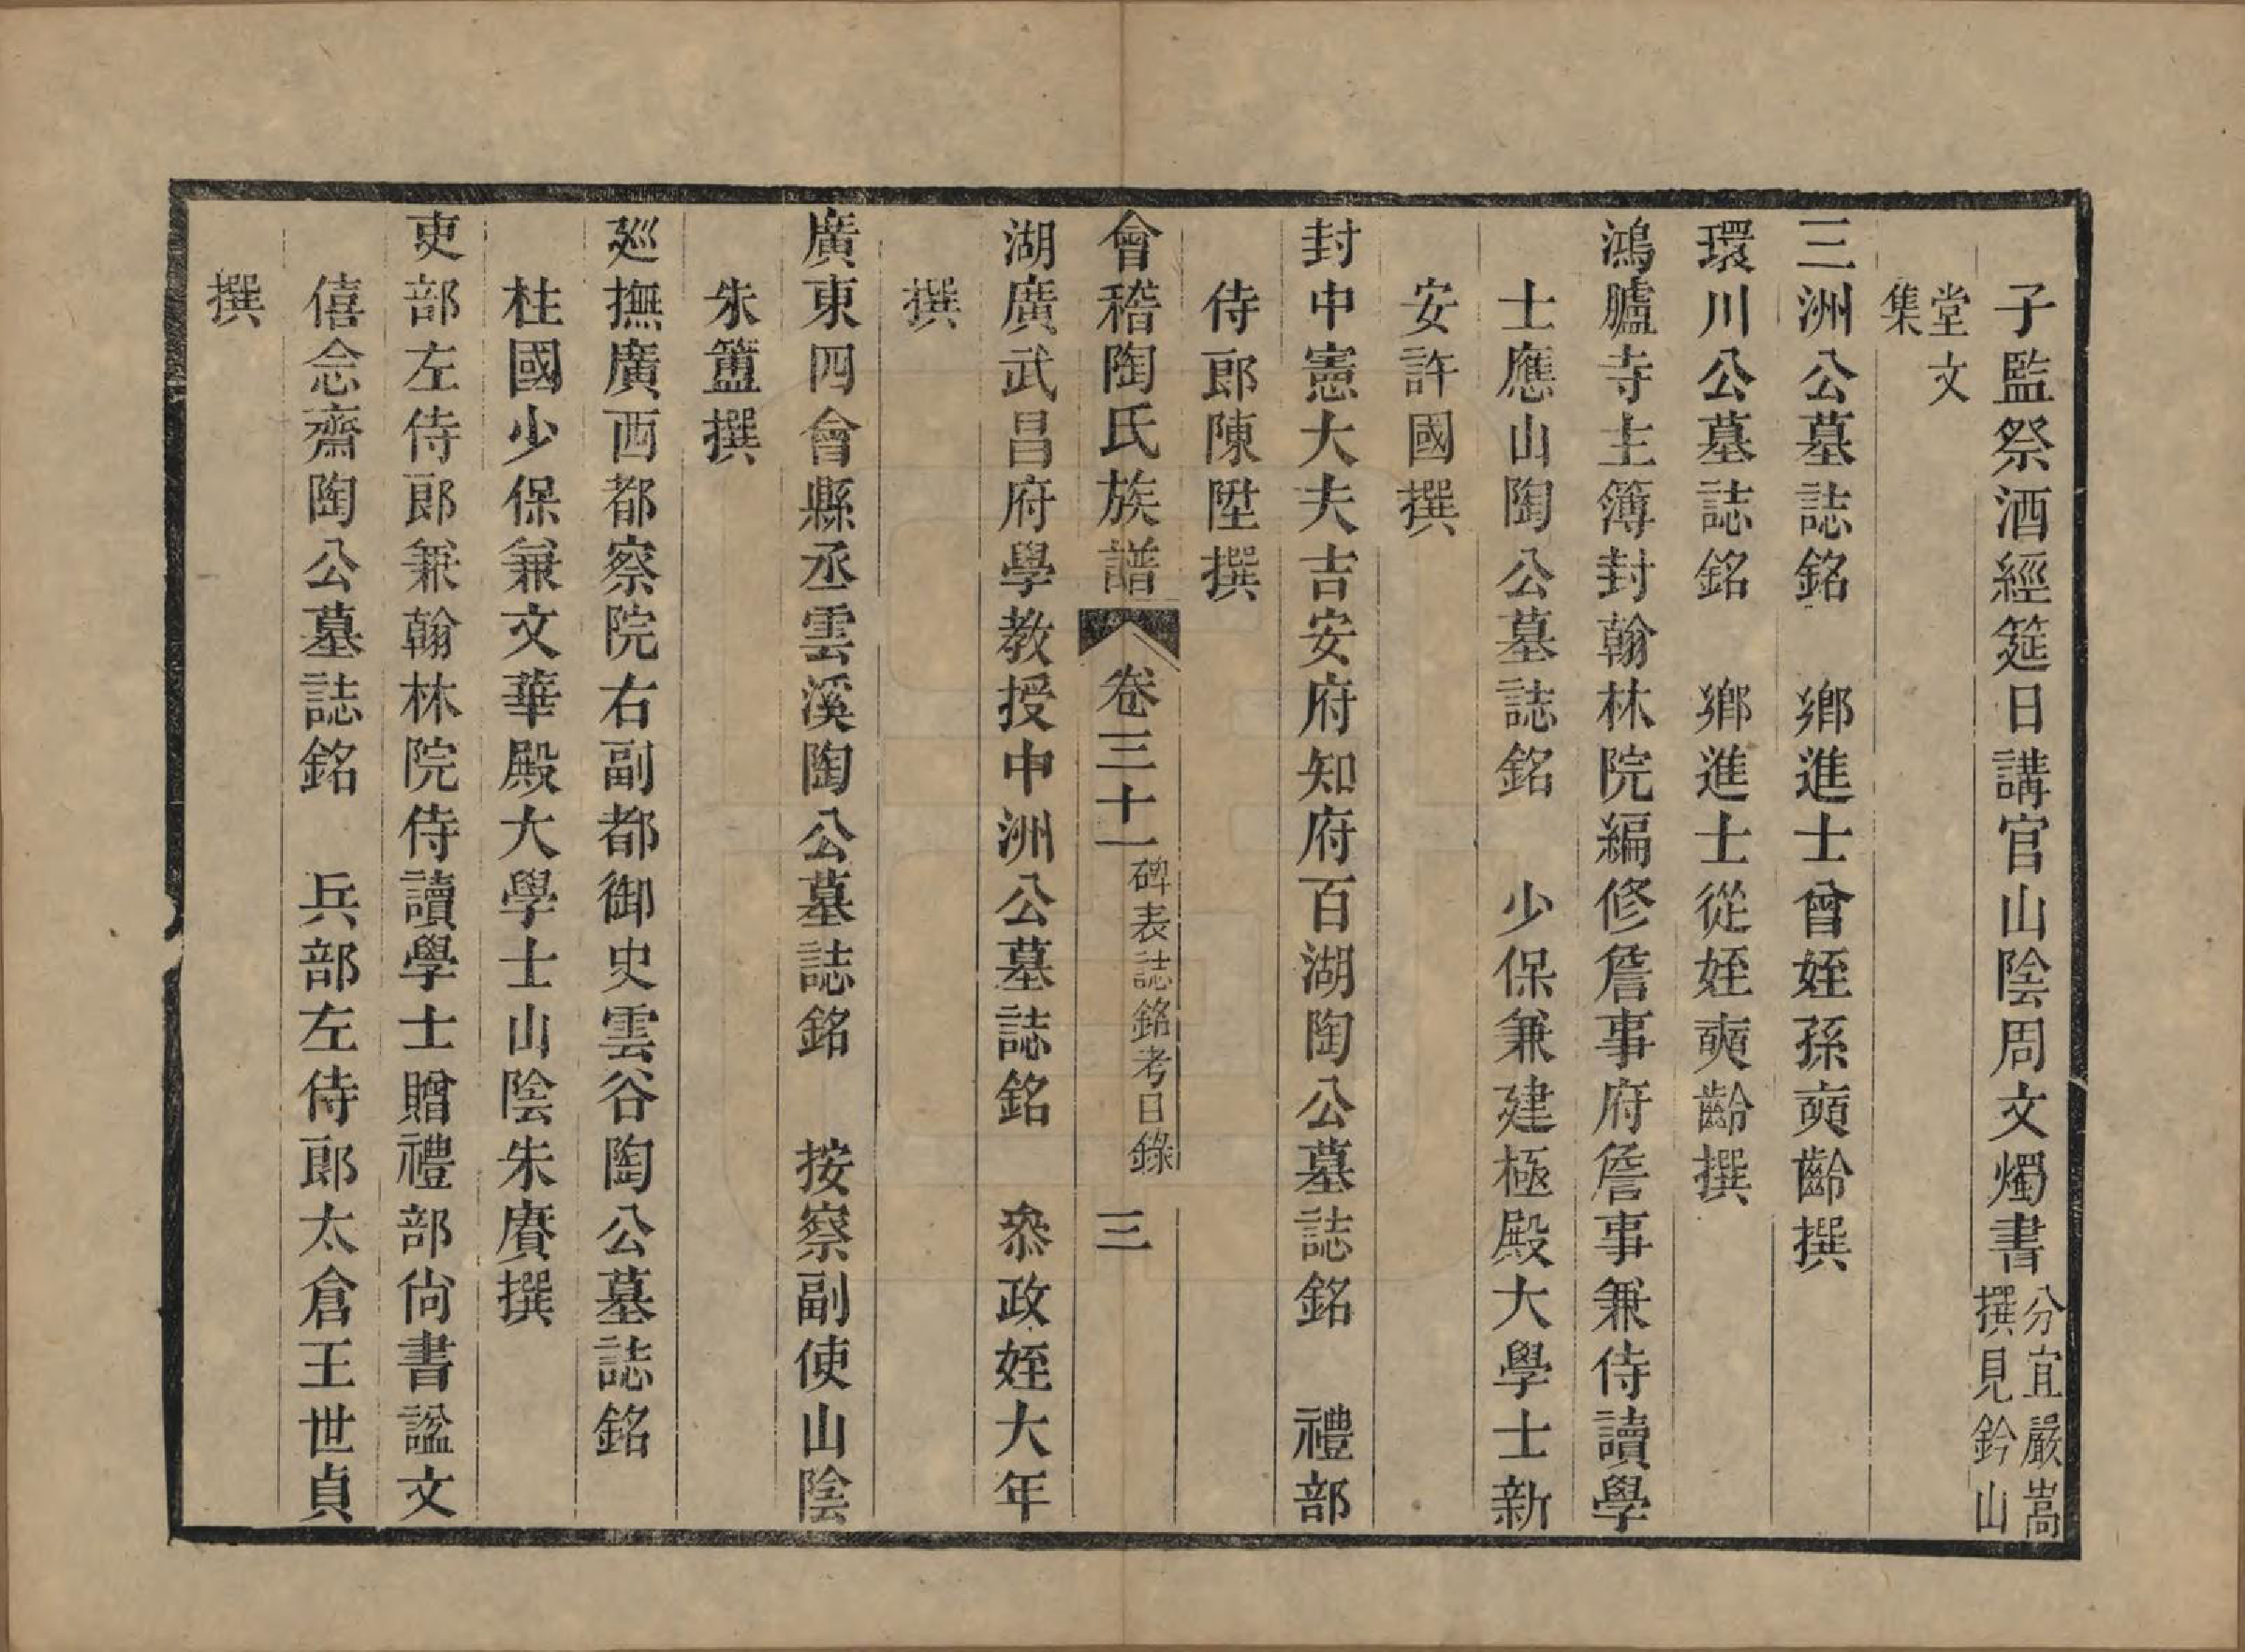 子監祭酒經筵日講官山陰周文燭書分宜嚴嵩撰見鈐山
堂文集
三洲公墓誌銘　鄉進士曾姪孫奭齡撰
環川公墓誌銘　鄉進士從姪奭齡撰
鴻臚寺主簿封翰林院編修詹事府詹事兼侍讀學
士應山陶公墓誌銘　少保兼建極殿大學士新
安許國撰
封中憲大夫吉安府知府百湖陶公墓誌銘　禮部
侍郎陳陞撰
會稽陶氏族譜　卷三十一碑表誌銘考目錄　三
湖廣武昌府學教授中洲公墓誌銘　叅政姪大年
撰
廣東四會縣丞雲溪陶公墓誌銘　按察副使山陰
朱簠撰
廵撫廣西都察院右副都御史雲谷陶公墓誌銘
柱國少保兼文華殿大學士山陰朱賡撰
吏部左侍郎兼翰林院侍讀學士贈禮部尙書諡文
僖念齋陶公墓誌銘　兵部左侍郎太倉王世貞
撰